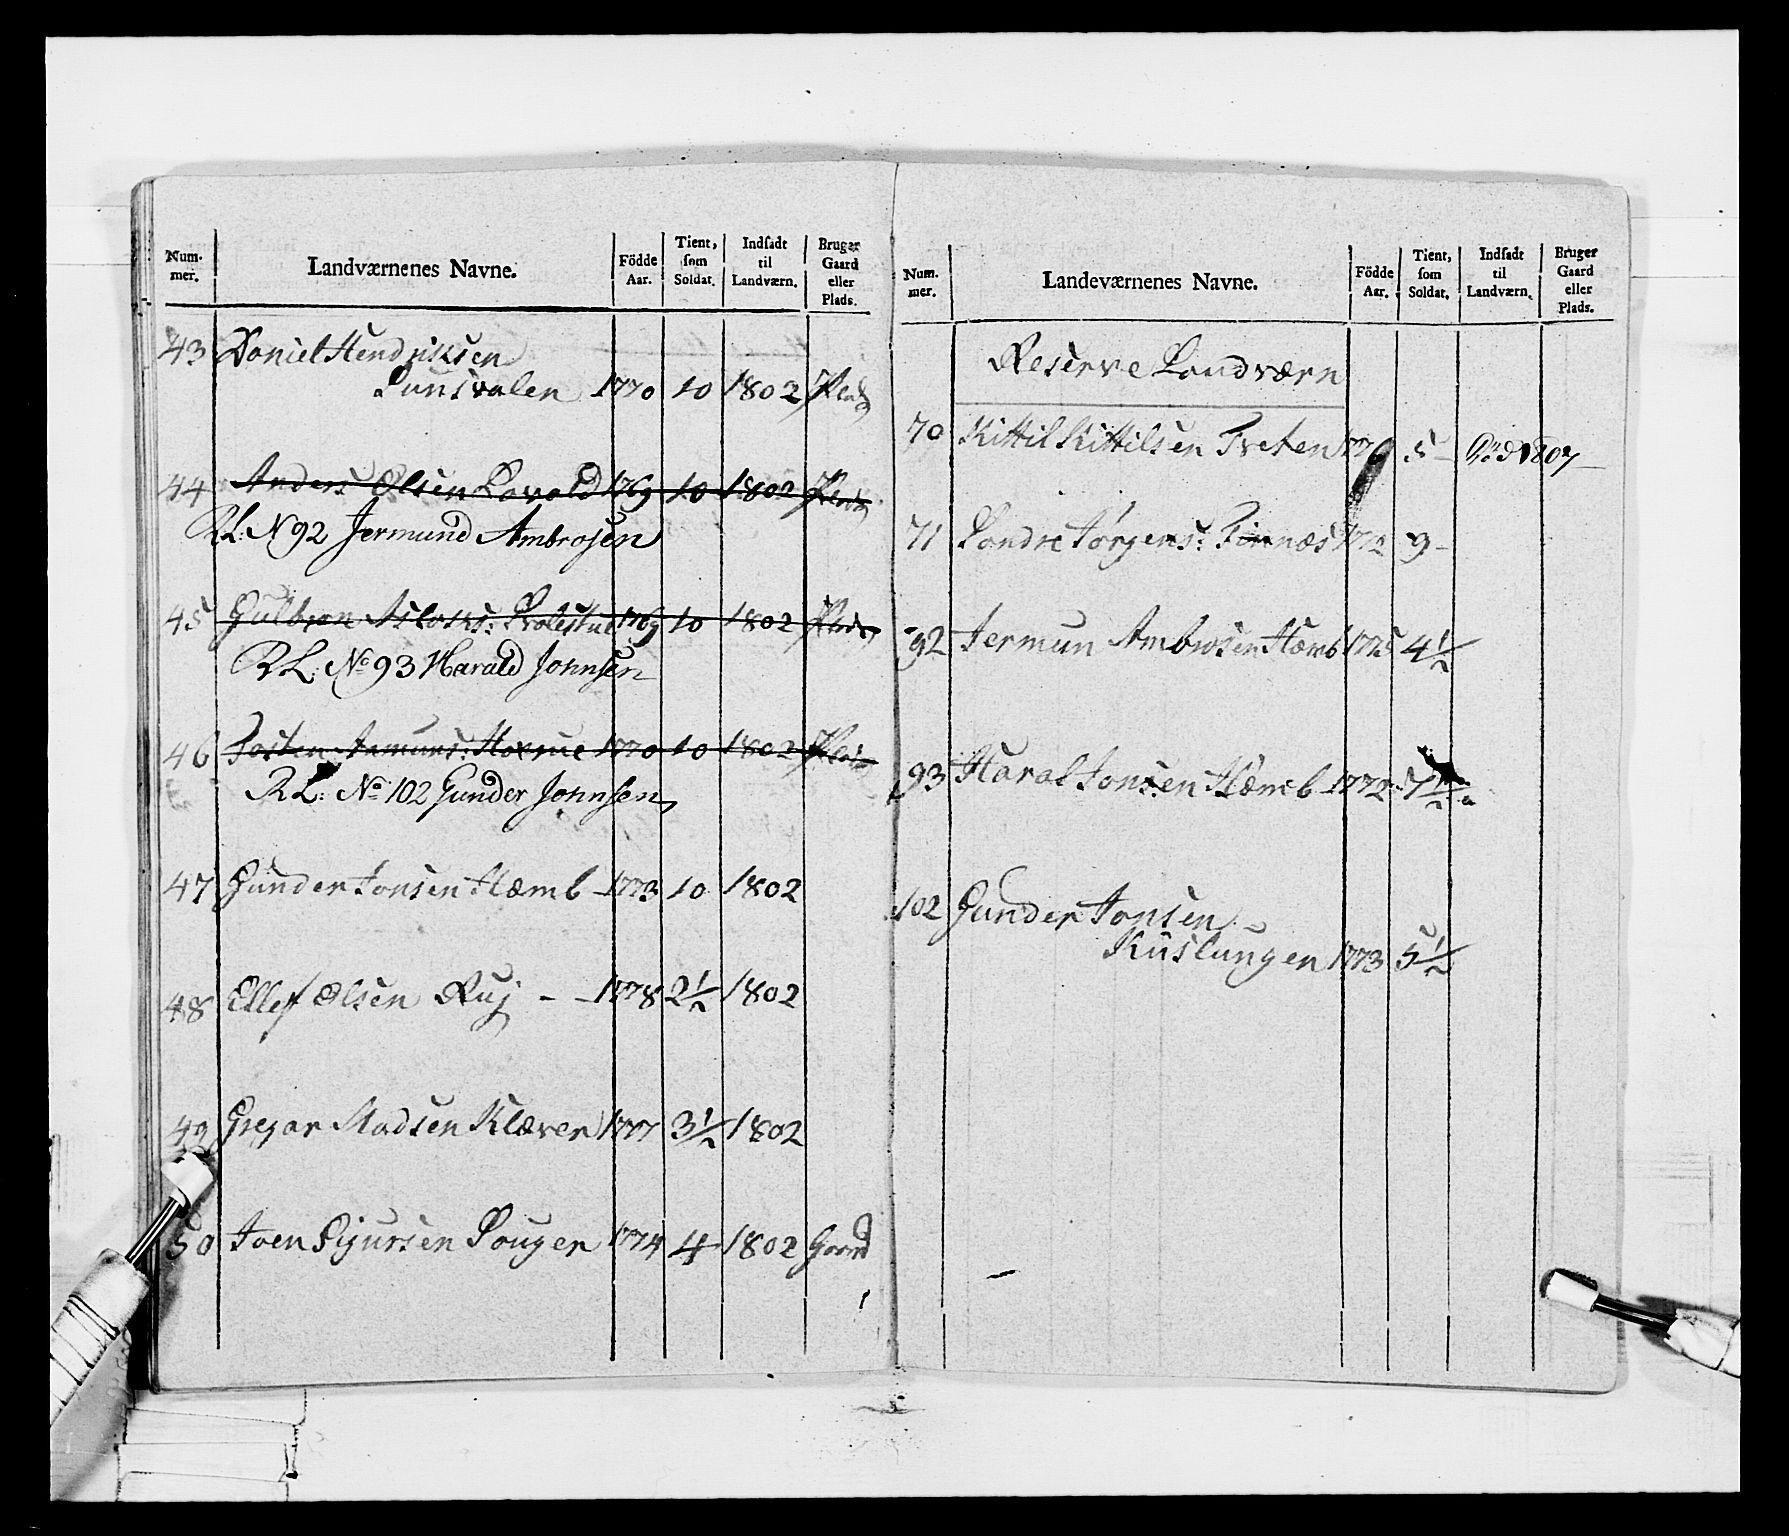 Num- mer. Landværnenes Navne. Födde Aar. Tient, som Soldat. Indsadt til Landværn. Bruger Gaard eller Plads.
43 Daniel Hendriksen
Lunsvalen 1770 10 1802 Plads
44 Anders Olsen Lavold 1769 10 1802 Plads
RL: N 92 Jermund Ambrosen
45 Gulbran Aslaks: 1769 10 1802 Plads
RL: No 93 Harald Johnsen
46 Tosten Amuns: 1770 10 1802 Plads
RL: No 102 Gunder Johnsen
47 Gunder Jonsen Hæmb 1773 10 1802
48 Ellef Olsen Ruj - - 1778 2½ 1802
49 Gregar Madsen Klæver 1777 3½ 1802
50 Joen Sigursen Souger 1774 4 1802 Gaard
Num. mer. Landeværnenes Navne. Födde Aar. Tient, som Soldat. Indsadt til Landværn. Bruger Gaard eller Plads.
Reserve Landværn
70 Kittil Kittilsen Treten 5 - Död 1807
71 Sondre Jørgens: Finnæs 1772 9 -
92 Jermun Ambrosen Hæmb 1775 4½
93 Haral Jonsen Hæmb 1772 7½
102 Gunder Jonsen
Kuslungen 1773 5½